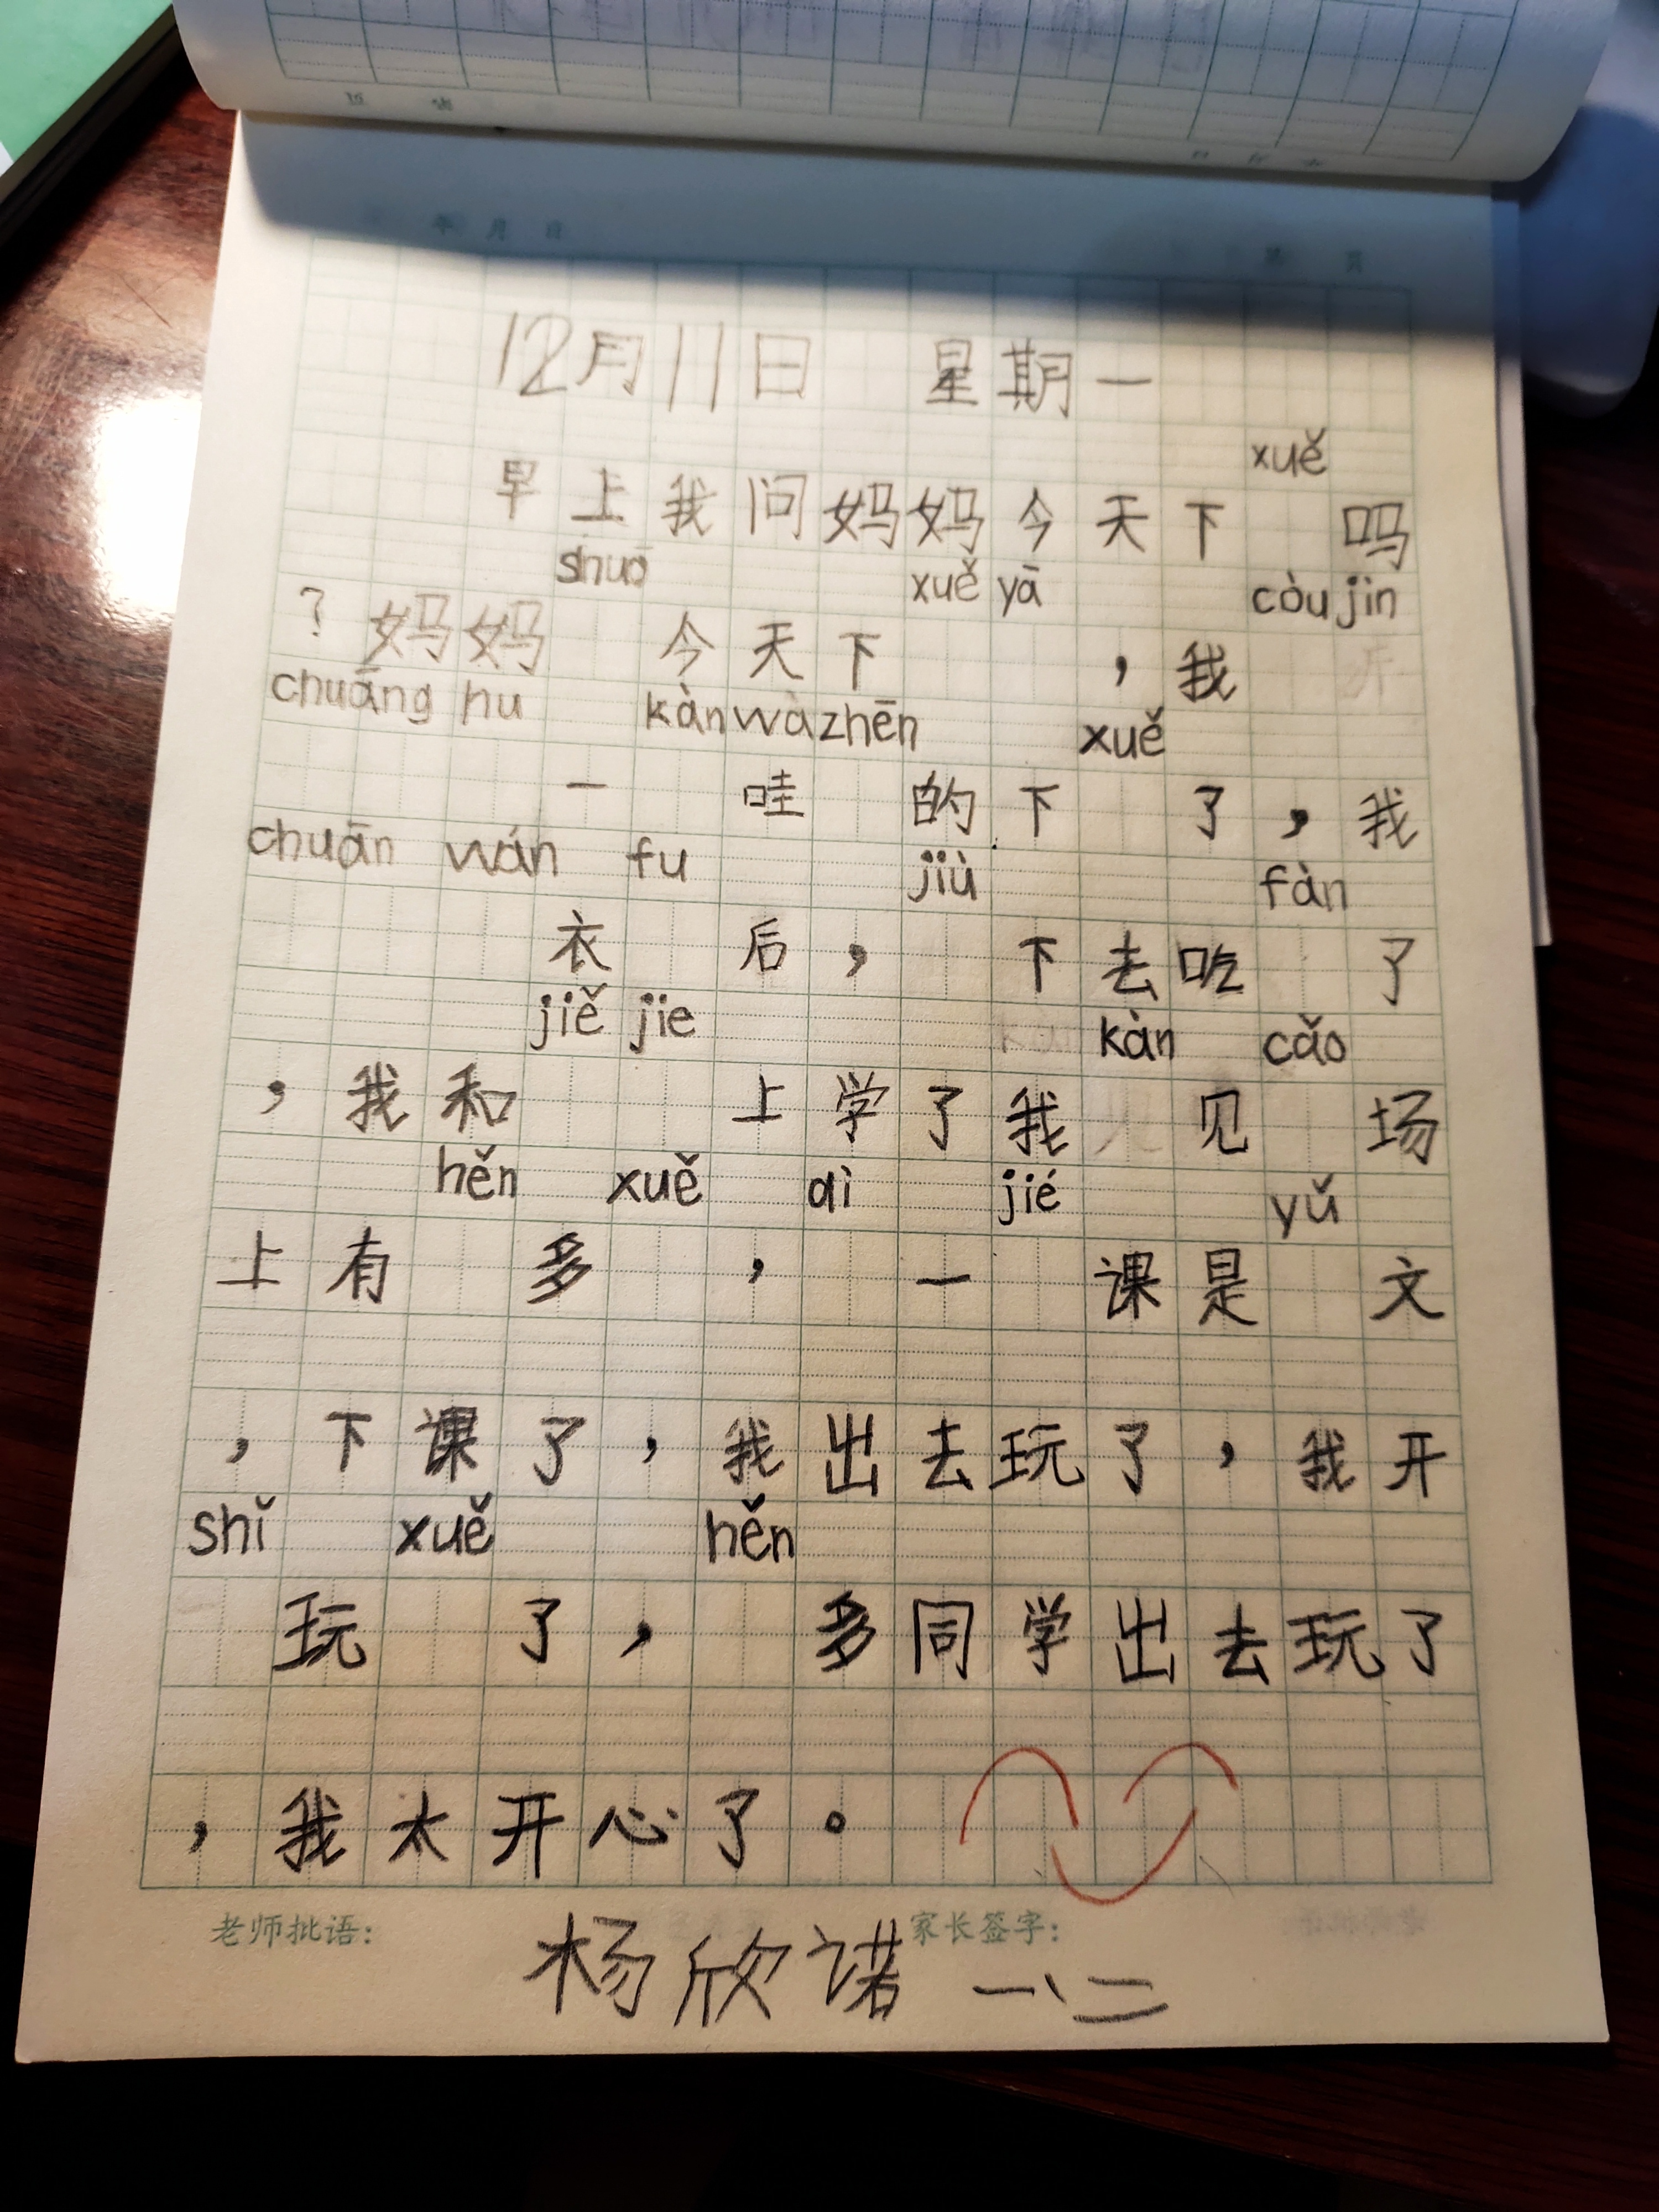 年 月 日
12月11日 星期一
xuě
早上我问妈妈今天下 吗
shuō xuě yā còu jìn
？妈妈 今天下 ，我
chuāng hu kàn wà zhēn xuě
一 哇 的下 了，我
chuān wán fu jiù fàn
衣 后， 下去吃 了
jiě jie kàn cǎo
，我和 上学了我 见 场
hěn xuě dì jié yǔ
上有 多 ， 一 课是 文
，下课了，我出去玩了，我开
shǐ xuě hěn
玩 了， 多同学出去玩了
，我太开心了。
老师批语： 家长签字：
杨欣诺 一、二